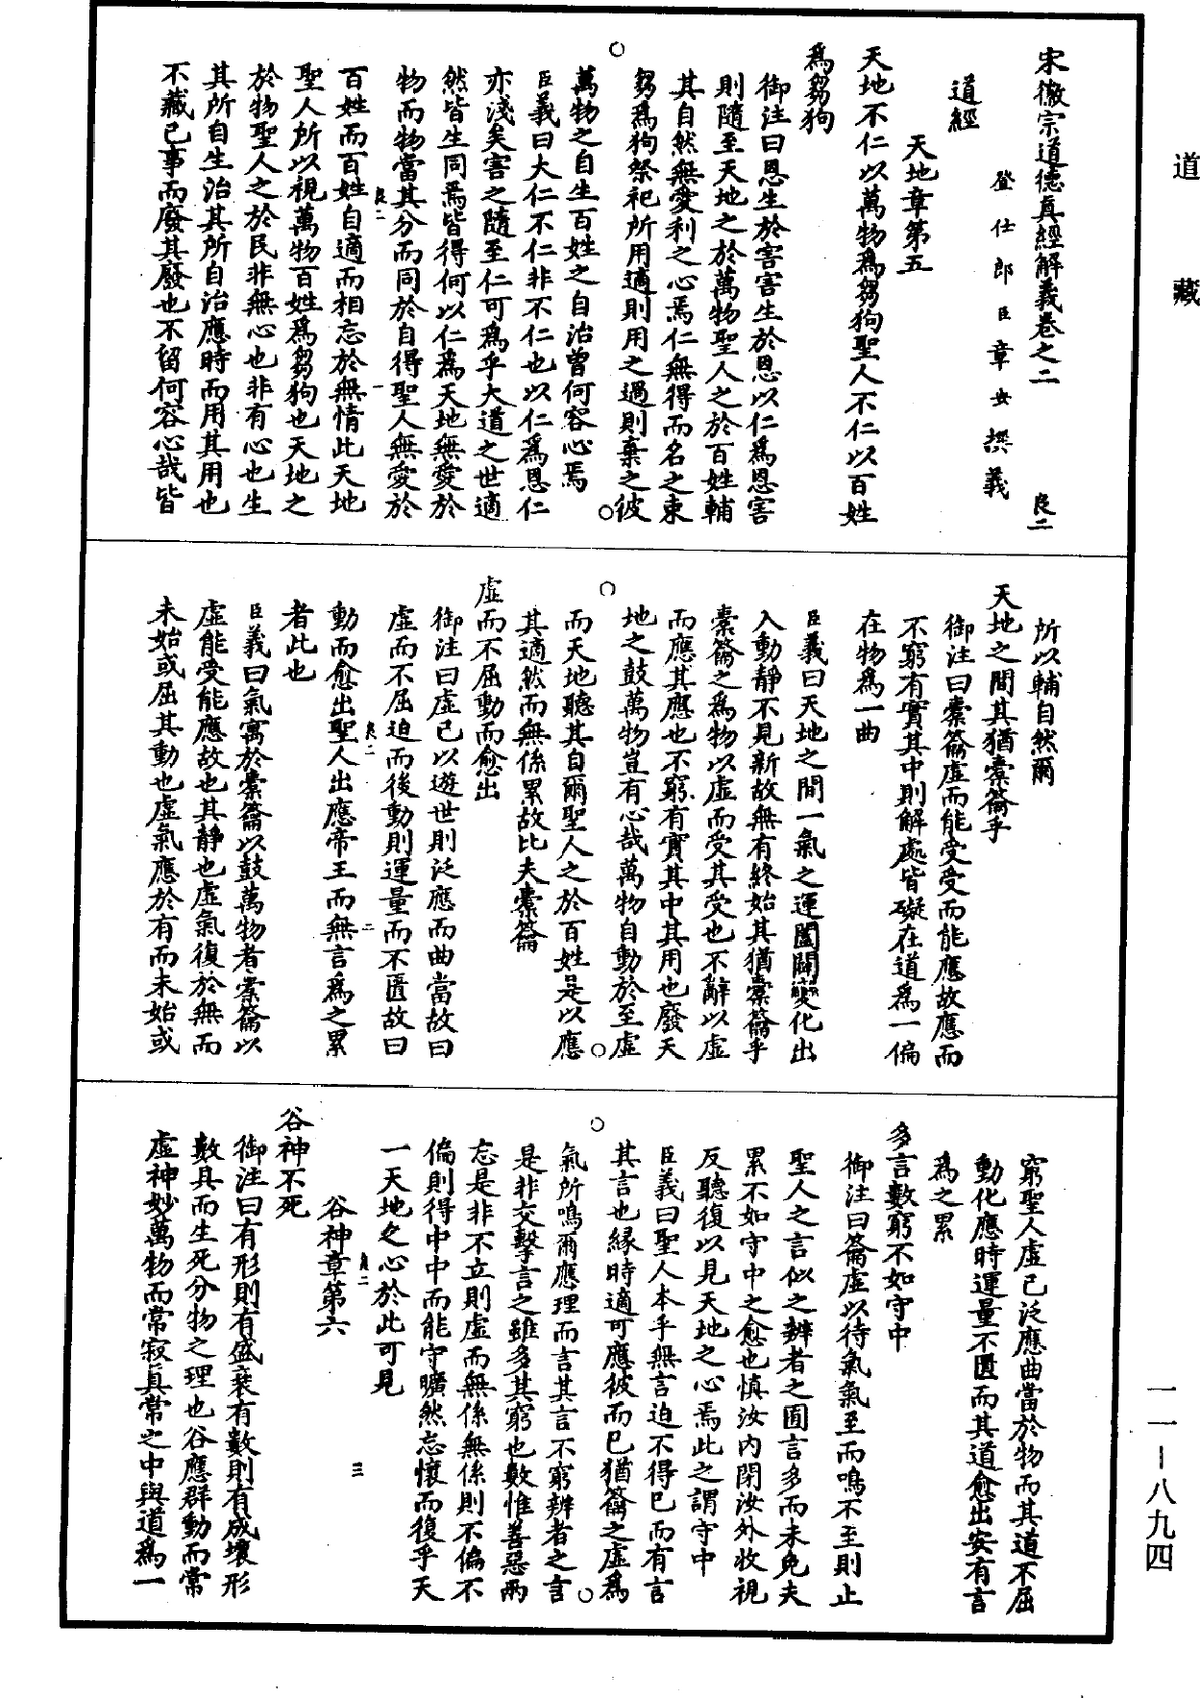 道藏
宋徽宗道德真經解義卷之二
良二
登仕郎臣章安撰義
道經
天地章第五
天地不仁以萬物爲芻狗聖人不仁以百姓
爲芻狗
御注曰恩生於害害生於恩以仁爲恩害
則隨至天地之於萬物聖人之於百姓輔
其自然無愛利之心焉仁無得而名之束
芻爲狗祭祀所用適則用之過則棄之彼
萬物之自生百姓之自治曾何容心焉
臣義曰大仁不仁非不仁也以仁爲恩仁
亦淺矣害之隨至仁可爲乎大道之世適
然皆生同焉皆得何以仁爲天地無愛於
物而物當其分而同於自得聖人無愛於
良二
一
百姓而百姓自適而相忘於無情此天地
聖人所以視萬物百姓爲芻狗也天地之
於物聖人之於民非無心也非有心也生
其所自生治其所自治應時而用其用也
不藏已事而廢其廢也不留何容心哉皆
所以輔自然爾
天地之間其猶橐籥乎
御注曰橐籥虛而能受受而能應故應而
不窮有實其中則解處皆礙在道爲一偏
在物爲一曲
臣義曰天地之間一氣之運闔闢變化出
入動靜不見新故無有終始其猶橐籥乎
橐籥之爲物以虛而受其受也不辭以虛
而應其應也不窮有實其中其用也廢天
地之鼓萬物豈有心哉萬物自動於至虛
而天地聽其自爾聖人之於百姓是以應
其適然而無係累故比夫橐籥
虛而不屈動而愈出
御注曰虛已以遊世則泛應而曲當故曰
虛而不屈迫而後動則運量而不匱故曰
良二
二
動而愈出聖人出應帝王而無言爲之累
者此也
臣義曰氣寓於橐籥以鼓萬物者橐籥以
虛能受能應故也其靜也虛氣復於無而
未始或屈其動也虛氣應於有而未始或
窮聖人虛已泛應曲當於物而其道不屈
動化應時運量不匱而其道愈出安有言
爲之累
多言數窮不如守中
御注曰籥虛以待氣氣至而鳴不至則止
聖人之言似之辨者之囿言多而未免夫
累不如守中之愈也慎汝內閉汝外收視
反聽復以見天地之心焉此之謂守中
臣義曰聖人本乎無言迫不得已而有言
其言也緣時適可應彼而已猶籥之虛爲
氣所鳴爾應理而言其言不窮辨者之言
是非交擊言之雖多其窮也數惟善惡兩
忘是非不立則虛而無係無係則不偏不
偏則得中中而能守曠然忘懷而復乎天
良二
三
一天地之心於此可見
谷神章第六
谷神不死
御注曰有形則有盛衰有數則有成壞形
數具而生死分物之理也谷應群動而常
虛神妙萬物而常寂真常之中與道爲一
一一—八九四